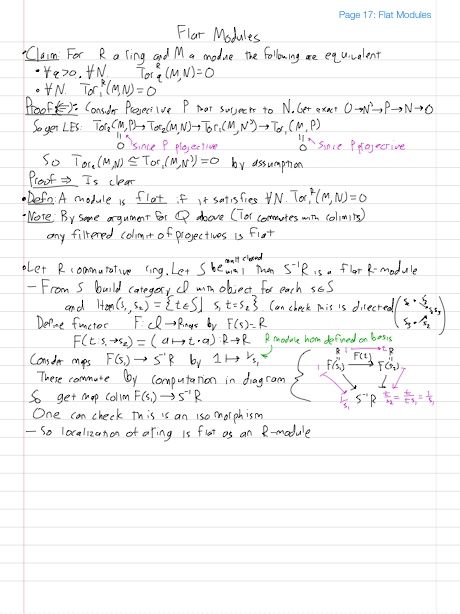 Page 17: Flat Modules
Flat Modules
• Claim: For R a ring and M a module the following are equivalent
• ∀q>0, ∀N. Tor_q^R(M,N)=0
• ∀N. Tor_1^R(M,N)=0
Proof(⇐): Consider Projective P that surjects to N. Get exact 0→N'→P→N→0
So get LES: Tor_2(M,P)→Tor_2(M,N)→Tor_1(M,N')→Tor_1(M,P)
0 since P projective 0 since P projective
So Tor_2(M,N) ≅ Tor_1(M,N')=0 by assumption
Proof ⇒ Is clear
• Defn: A module is flat if it satisfies ∀N. Tor_1^R(M,N)=0
• Note: By same argument for Q above (Tor commutes with colimits)
any filtered colimit of projectives is flat
• Let R commutative ring. Let S be mult closed w/ 1 then S⁻¹R is a flat R-module
– From S build category with object for each s∈S
and Hom(s₁,s₂) = {t∈S| s₁t=s₂}. Can check this is directed
Define functor F: → Rings by F(s)=R
F(t:s₁→s₂) = (a↦t·a): R→R R module hom defined on basis
Consider maps F(s₁) → S⁻¹R by 1↦1/s₁
These commute by computation in diagram
R 1 ↦ t R
F(s₁) F(t) → F(s₂)
1/s₁ S⁻¹R t/s₂ = t/ts₁ = 1/s₁
So get map colim F(s₁) → S⁻¹R
One can check this is an isomorphism
– So localization of a ring is flat as an R-module